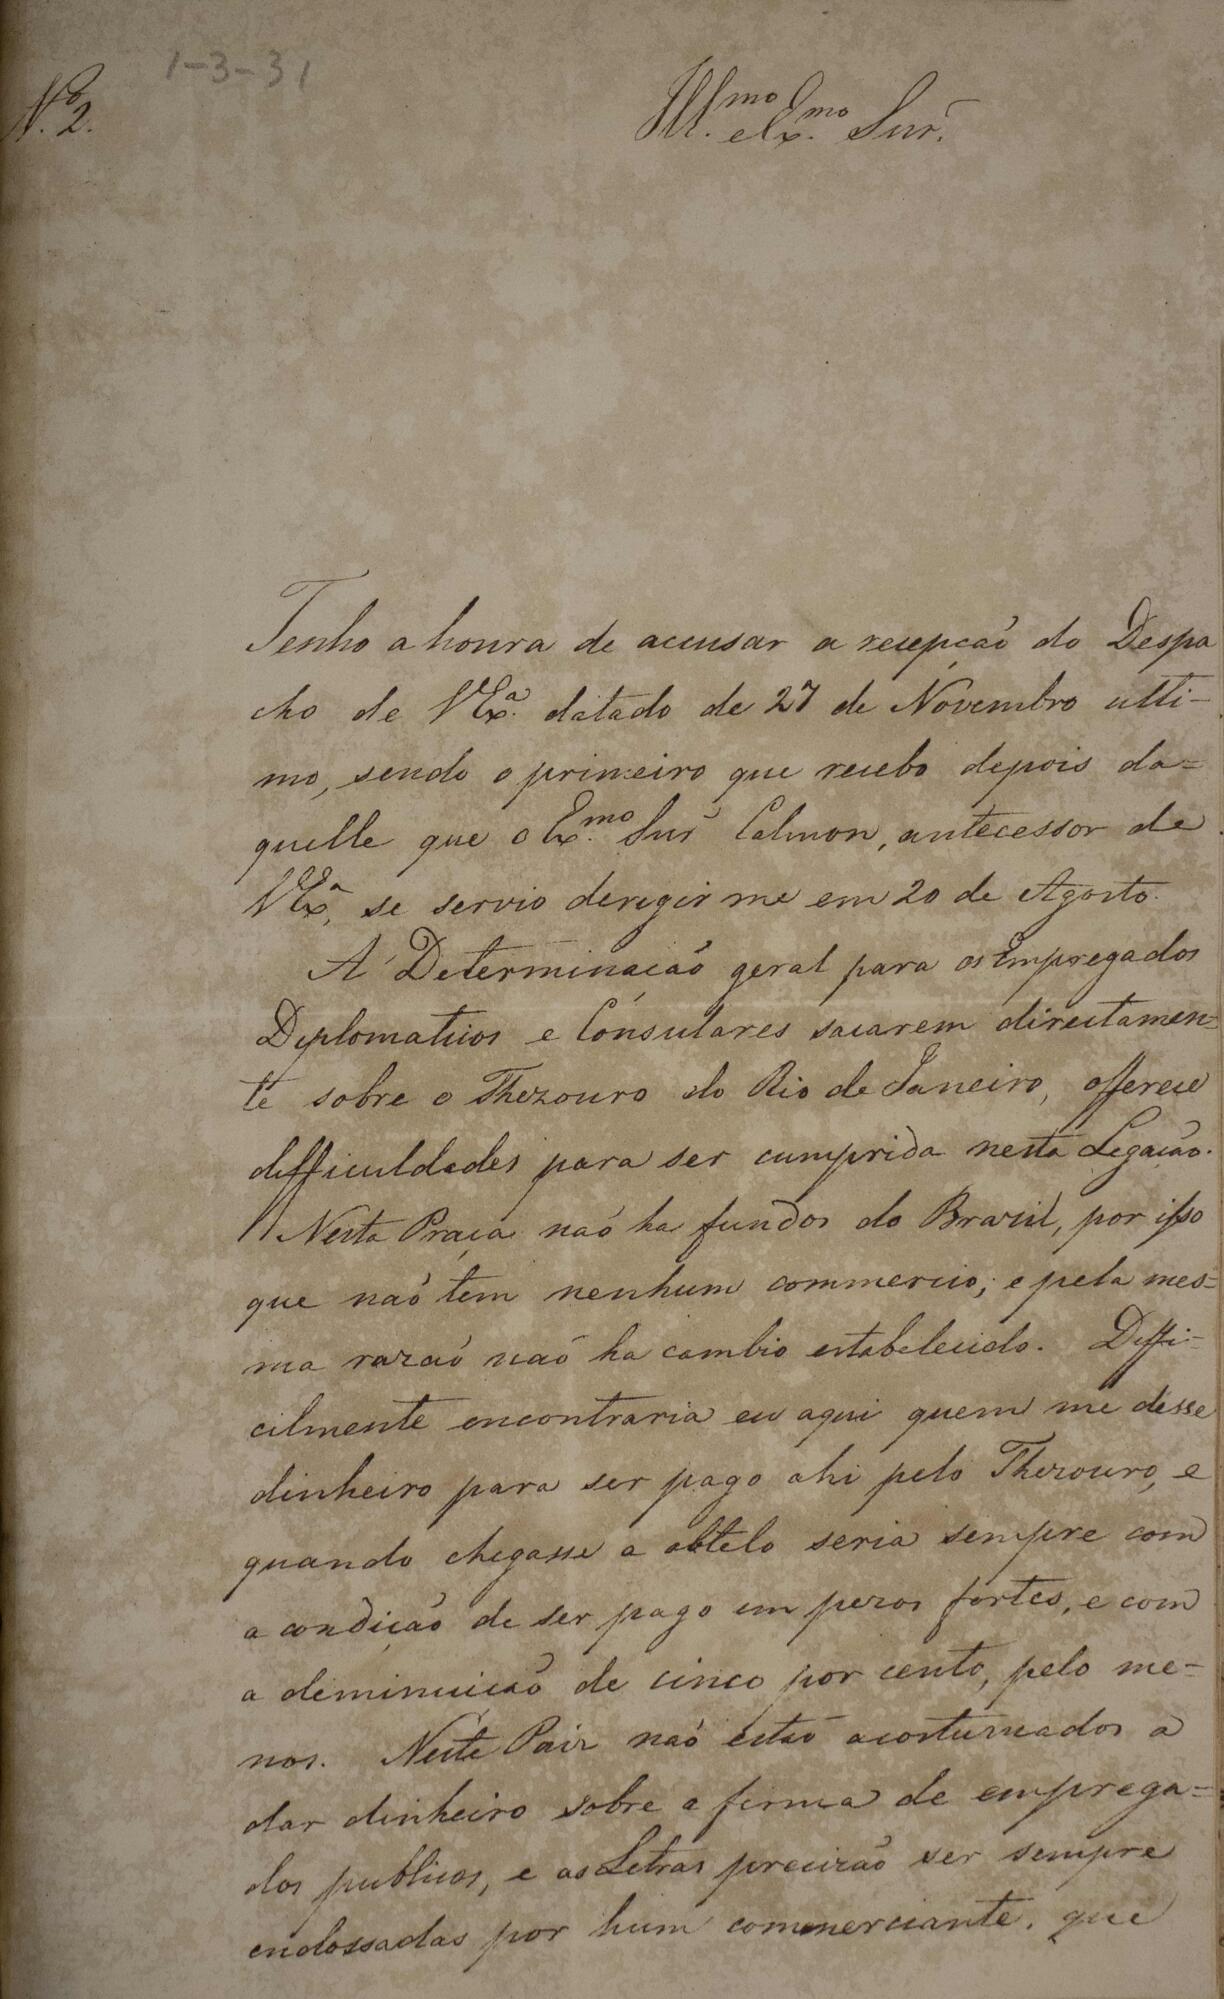 1-3-31
N.º 2.
Ill.mo e Ex.mo Snr.
Tenho a honra de accusar a recepção do Despa
cho de VEx.ª datado de 27 de Novembro ulti-
mo, sendo o primeiro que recebo depois da=
quelle que o Ex.mo Snr Calmon, antecessor de
VEx.ª, se servio deregir me em 20 de Agosto.
A Determinação geral para os Empregados
Diplomaticos e Consulares sacarem directamen=
te sobre o Thezouro do Rio de Janeiro, offerece
difficuldades para ser cumprida nesta Legação.
Nesta Praça não ha fundos do Brazil, por isso
que não tem nenhum commercio; e pela mes=
ma razão não ha cambio estabelecido. Diffi=
cilmente encontraria eu aqui quem me desse
dinheiro para ser pago ahi pelo Thezouro, e
quando chegasse a obtelo seria sempre com
a condição de ser pago em pezos fortes, e com
a deminuição de cinco por cento, pelo me-
nos. Neste Paiz não estão acostumados a
dar dinheiro sobre a firma de emprega=
dos publicos, e as Letras precizão ser sempre
endossadas por hum commerciante, que